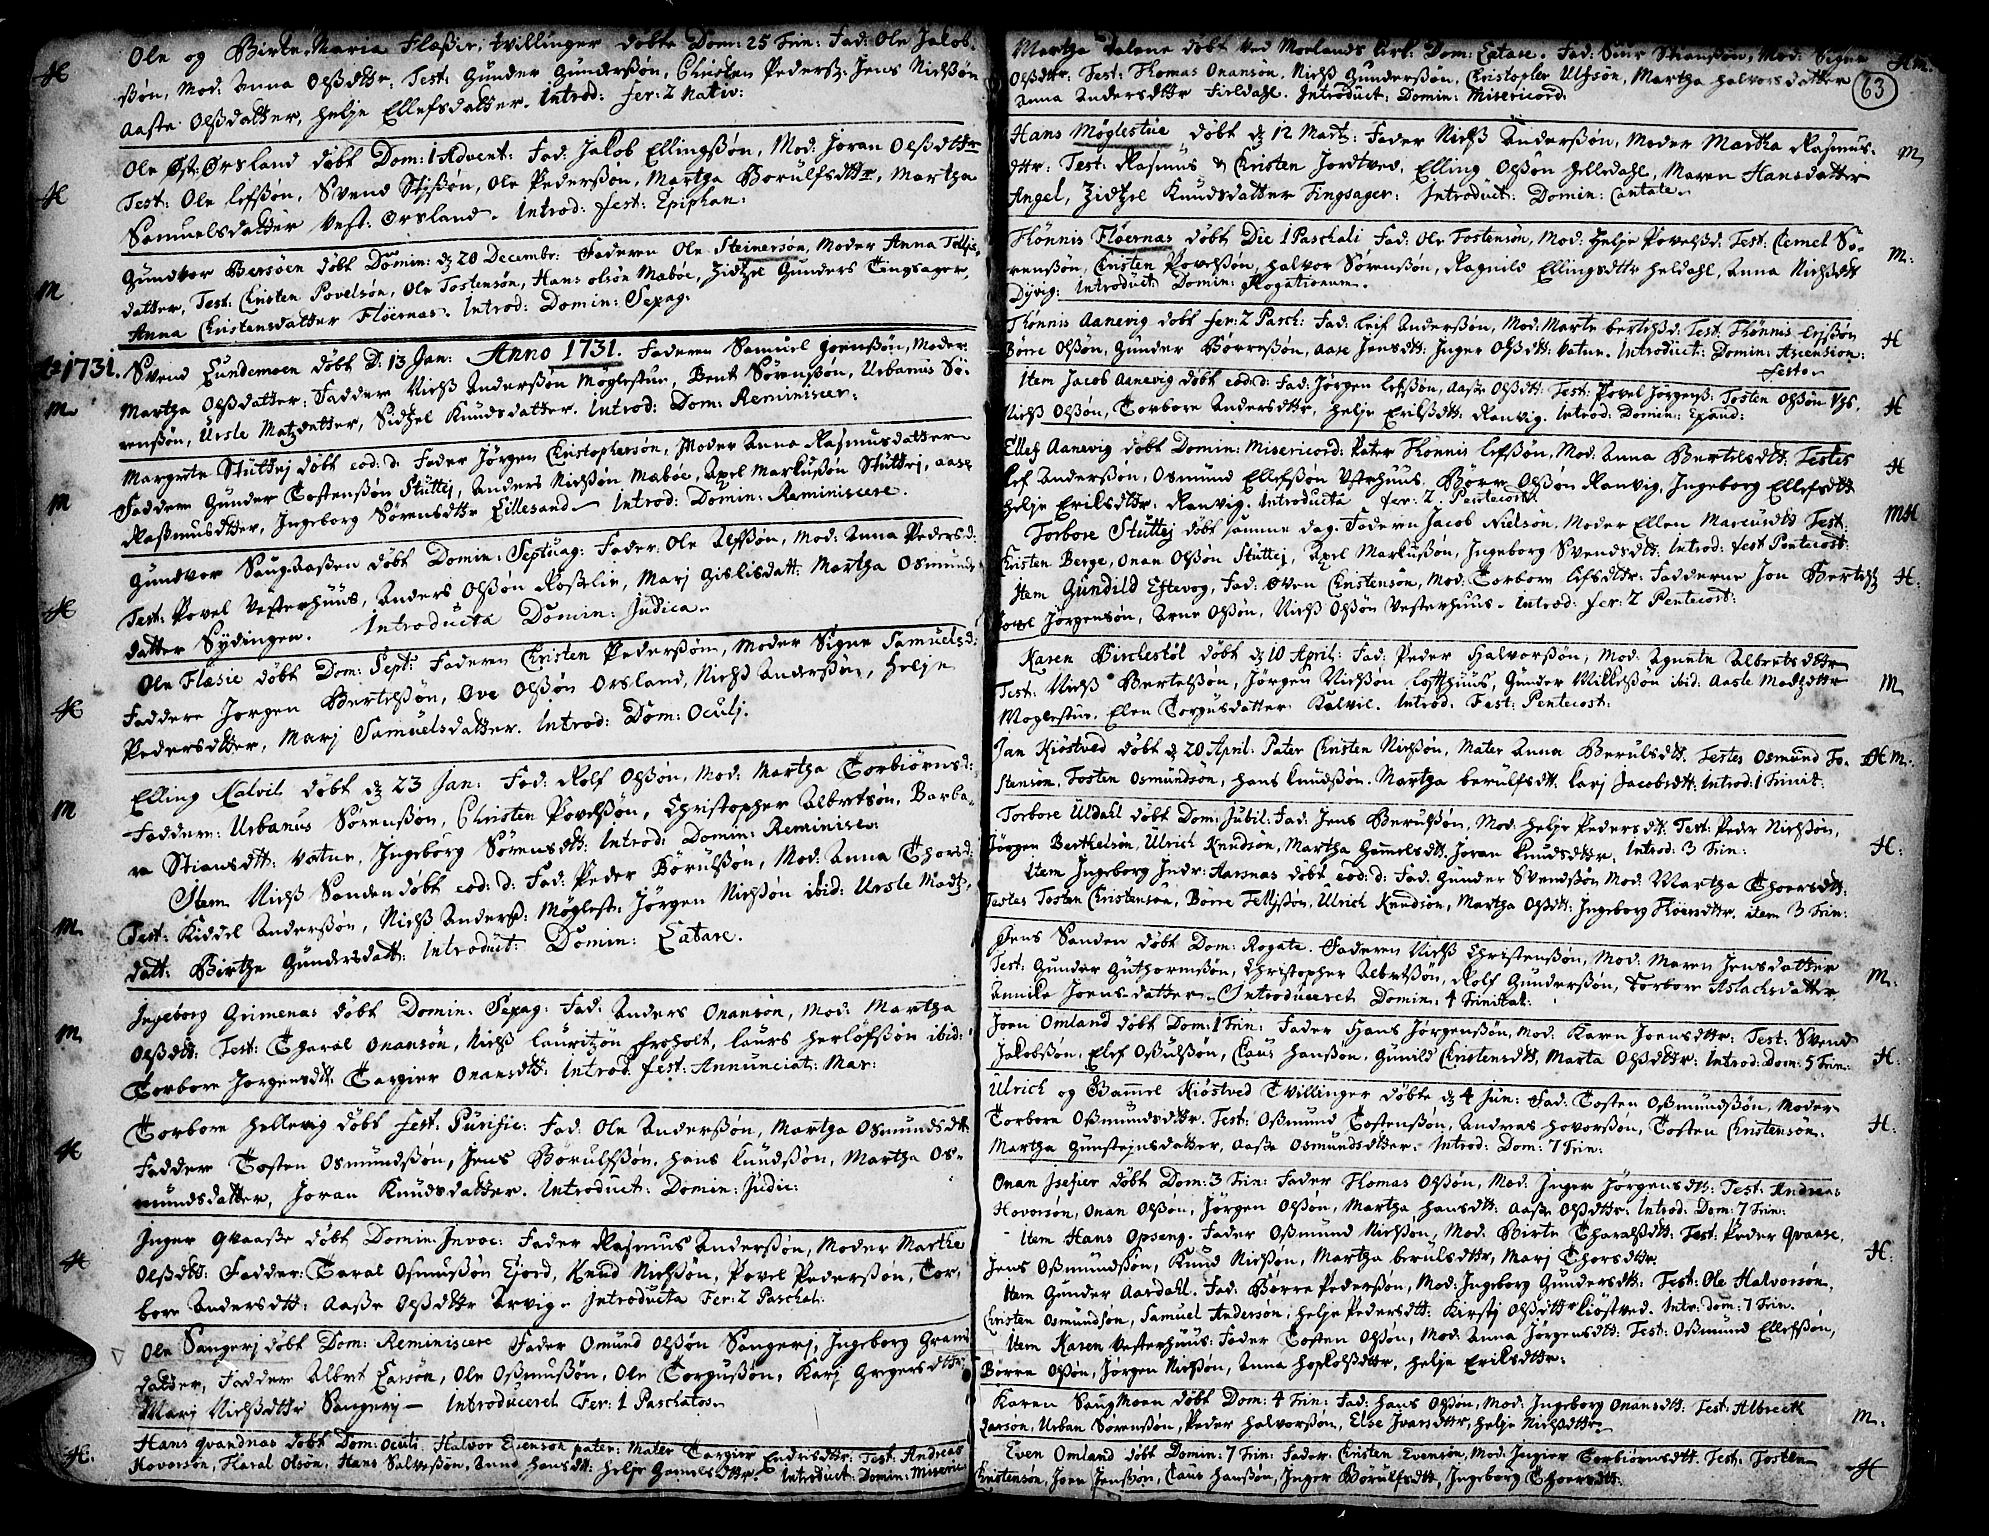 H
Ole og Birte Maria Flaßir, tvillinger döbte Dom: 25 Trin: Fad: Ole Jakob-
ßön, Mod: Anna Olßdttr. Test: Gunder Gunderßön, Christen Pederß: Jens Nielßön
Aaste Olßdatter, Helje Ellefsdatter. Introd: fer: 2 Nativ:
H
Ole Øst: Ørsland döbt Dom: 1 Advent: Fad: Jakob Ellingßön, Mod: Joran Olßdttr
Test: Ole Lefßön, Svend Stißön, Ole Pederßön, Martha Börulfsdttr, Martha
Samuelsdatter Vest: Ørsland. Introd: fest: Epiphan:
M
Gundvor Bersöen döbt Domin: d 20 Decembr: Faderen Ole Steinersön, Moder Anna Tellfs-
datter, Test: Christen Povelsön, Ole Tostensön, Hans Olsön Maboe, Zidtzel Gunders Tingsager,
Anna Christensdatter Flöernas. Introd: Domin: Sexag:
Ao 1731.
Svend Lundemoen döbt D: 13 Jan: Anno 1731. Faderen Samuel Joenßön, Moder
M
Martha Olßdatter: Faddere Nielß Anderßön Möglestue, Bent Sörenßön, Urbanus Sö-
renßön, Ursle Matzdatter, Sidtzel Knudsdatter. Introd: Dom: Reminiscer:
M
Margrete Stüttej döbt eod: d: Fader Jörgen Christophersön, Moder Anna Rasmusdatter
Faddere Gunder Tostenßön Stüttej, Anders Nielßön Maboe, Axel Markußön Stüttej, Aase
Rasmusdtter, Ingeborg Sörensdttr Lillesand. Introd: Domin: Reminiscere.
H
Gundvor Saugaasen döbt Domin: Septuag: Fader: Ole Alfßön, Mod: Anna Pedersd:
Test: Povel Vesterhuus, Anders Olßön Roßelin, Marj Gislisdatt: Martha Osmunds
datter Sydingen. Introducta Domin: Judica.
H
Ole Flasie döbt Dom: Sept: Faderen Christen Pederßön, Moder Signe Samuelsd:
Faddere Jörgen Bertelßön, Ove Olßön Orsland, Nielß Anderßön, Helje
Pedersdtter, Marj Samuelsdatter. Introd: Dom: Oculj.
M
Elling Kalvil döbt d 23 Jan: Fad: Rolf Olßön, Mod: Martha Torbiörnsd:
Faddere: Urbanus Sörenßön, Christen Povelßön, Christopher Albretsön, Barba-
ra Stiansdtt: Vatne, Ingeborg Sörensdtt: Introd: Domin: Reminisc:
M
Item Nielß Sanden döbt eod: d: Fad: Peder Börulßön, Mod: Anna Thorsd:
Test: Kiddel Anderßön, Nielß Anderß: Möglest: Jörgen Nielßön ibid: Ursle Madtz-
datt: Birthe Gundersdatt: Introduct: Domin: Lætare.
M
Ingeborg Grimenas döbt Domin: Sexag: Fad: Anders Onansön, Mod: Martha
Olßdtt: Test: Tharal Onansön, Nielß Lauritzön Froholt, Laurs Herlofßön ibid:
Torbore Jorgensdtt: Targier Onansdtt: Introd: fest: Annunciat: Mar:
H
Torbore Hellevig döbt fest: Purific: Fad: Ole Anderßön, Martha Osmundsdtt
Fadder Tosten Osmundßön, Jens Börulfßön, Hans Knudßön, Martha Os-
mundsdatter, Joran Knudsdatter. Introduct: Domin: Judic:
H
Inger Qvaaße döbt Domin: Invoc: Fader Rasmus Anderßön, Moder Marthe
Olßdtt: Fadder: Taral Osmußön Ejord, Knud Nielßön, Povel Pederßön, Tor-
bore Andersdtt: Aaste Olßdttr Arvig. Introducta Fer: 2 Paschat:
Ole Sangerj döbt Dom: Reminiscere Fader Omund Olßön Sangerj, Ingeborg Grams
datter, Fadder Albret Larsön, Ole Oßmußön, Ole Torgußön, Karj Gregersdttr
Marj Nielßdttr Sangerj — Introduceret Fer: 1 Paschatos.
H.
Hans Qvandnas döbt Dom: Oculi. Halvor Evensön pater: Mater Targier Endresdttr. Test: Andreas
Hovorsön, Haral Olsön, Hans Salveßön, Anne Hansdtt: Helje Gamelsdttr. Introduct: Domin: Miseric:
63
Martha Dalene döbt ved Moelands Kirk: Dom: Lætare. Fad: Siur Stianßön, Mod: Signe
H M.
Olßdttr. Test: Thomas Onansön, Nielß Gunderßön, Christopher Ulfsön, Martha Halvorsdatter
Anna Andersdttr Tireldahl. Introduct: Domin: Misericord:
Hans Möglestue döbt d 12 Martz: Fader Nielß Anderßön, Moder Martha Rasmus-
M
dttr: Test: Rasmus & Christen Jordtved, Elling Olßön Hilledahl, Maren Hansdatter
Angel, Zidtzel Knudsdatter Tingsager: Introduct: Domin: Cantate.
Thönnis Flöernas döbt Die 1 Paschali Fad: Ole Tostensön, Mod: Helje Povelsd. Test: Clemet Sö-
M.
renßön, Christen Povelßön, Halvor Sörenßön, Ragnild Ellingsdttr Heldahl, Anna Nielsdtt
Dÿvig: Introduct: Domin: Rogationum.
Thönnis Aanevig döbt fer: 2 Pasch: Fad: Leif Anderßön, Mod: Marte Bertelsd: Test: Thönnis Lefßön
H
Börre Olßön, Gunder Börreßön, Aase Jensdtt: Inger Olßdtt: Vatne. Introduct: Domin: Ascension:
festo.
Item Jacob Aanevig döbt eod: d: Fad: Jörgen Lefßön, Aaste Olßdtt: Test: Povel Jörgenß: Tosten Olßön Ves.
H
Nielß Olßön, Torbore Andersdttr, Helje Erikßdtt: Ranvig. Introd: Domin: Exaud:
Ellef Aanevig döbt Domin: Misericord: Pater Thönnis Lefßön, Mod: Anna Bertelsdtt: Testes
H
Lef Anderßön, Osmund Ellefßön Vsterhuus, Börre Olßön Ranvig, Ingeborg Ellefsdtt
Helje Eriksdttr. Ranvig. Introducta fer: 2. Pentecost:
Torbore Stüttej döbt samme dag. Faderen Jacob Nielsön, Moder Ellen Marcusdtt Test.
MH
Christen Berge, Onan Olßön Stüttej, Axel Markußön, Ingeborg Svendsdtt: Introd: fest Pentecost:
Item Gundild Eftevog, Fad: Even Christensön, Mod: Torbore Lefsdttr: Fadderne Jon Bertelß
H:
Povel Jörgensön, Arne Olßön, Nielß Olßön Vesterhuus. Introd: fer: 2 Pentecost:
Karen Birchestöl döbt d 10 April: Fad: Peder Halvorßön, Mod: Agnete Albretsdttr
M
Test: Nielß Bertelßön, Jörgen Nielßön Lofthuus, Gunder Villeßön ibid: Aasle Madtzdttr
Moglestue. Elen Torgusdatter Kalvil. Introd: Fest: Pentecost:
Jan Kiöstved döbt d 20 April. Pater Christen Nielßön, Mater Anna Berulsdtt. Testes Osmund To-
H M.
stensön, Tosten Osmundsön, Hans Knudßön. Martha Berulfsdtt: Karj Jacobsdtt: Introd: 1 Trinit:
Torbore Uldahl döbt Dom: Jubil: Fad: Jens Berulßön, Mod: Helje Pedersdtt: Test: Peder Nielßön,
H:
Jörgen Berthelsön, Ulrich Knudsön, Martha Gamelsdtt, Joran Knudsdttr. Introd: 3 Trin:
Item Ingeborg Indr: Aarsnas döbt eod: d: Fad: Gunder Svendßön Mod: Martha Thoersdtt:
Testes Tosten Christensön, Börre Telljßön, Ulrich Knudsön, Martha Olßdtt: Ingeborg Thöersdttr. item 3 Trin:
Jens Sanden döbt Dom: Rogate. Faderen Nielß Christenßön, Mod: Maren Jensdatter
M.
Test: Gunder Guthormßön, Christopher Albretßön, Rolf Gunderßön, Torbore Aslachsdatter
Annike Joensdatter. Introduceret Domin: 4 Trinitat:
Joen Omland döbt Dom: 1 Trin: Fader Hans Jörgenßön, Mod: Karen Joensdttr: Test: Svend
H:
Jakobßön, Elef Oßulßön, Claus Hanßön, Gunild Christensdtt, Marta Olßdttr: Introd: Dom: 5 Trin:
Ulrich og Gamel Kiöstved Tvillinger döbte d 4 Jun: Fad: Tosten Oßmundßön, Moder
H.
Torbore Oßmundsdttr. Test: Oßmund Tostenßön, Andreas Hovorßön, Tosten Christensön.
Martha Gunstejnsdatter, Aaste Osmundsdtter. Introd: Dom: 7 Trin:
Onan Isefier döbt Dom: 3 Trin: Fader Thomas Olßön, Mod. Inger Jörgensdtt: Test: Andreas
Hovorsön, Onan Olßön, Jörgen Olßön, Martha Hansdtt: Aaste Olßdttr: Introd: Dom: 7 Trin:
Item Hans Opseng. Fader Oßmund Nielßön, Mod: Birte Tharalßdtt: Test: Peder Qvaase,
H:
Jens Oßmundßön, Knud Nielßön, Martha Berulsdttr, Marj Thorsdttr.
Item Gunder Aardahl. Fad: Börre Pederßön, Mod: Ingeborg Gundersdtt: Test: Ole Halvorsön,
Christen Osmundsön, Samuel Andersön, Helje Pedersdtt: Kirstj Olßdttr Kiöstved. Intr: Dom: 7 Trin.
Item Karen Vesterhuus: Fader Tosten Olßön, Mod: Anna Jörgensdtt: Test: Oßmund Ellefßön,
Börre Olßön, Jörgen Nielßön, Anna Hoskolßdttr, Helje Eriksdttr:
Karen SaugMoen döbt Dom: 4 Trin: Fad: Hans Olßön, Mod: Ingeborg Onansdtt: Test: Albrecht
M.
Larson, Urban Sörenßön, Peder Halvorßön, Else Ivarsdttr, Helje Nielßdttr.
Even Omland döbt Domin: 7 Trin: Fader: Christen Evensön, Mod: Ingier Torbiörnsdtt. Test: Tosten
H
Christensön, Joen Jenßön, Claus Hanßön, Inger Börulfsdtt, Ingeborg Thoersdtt.